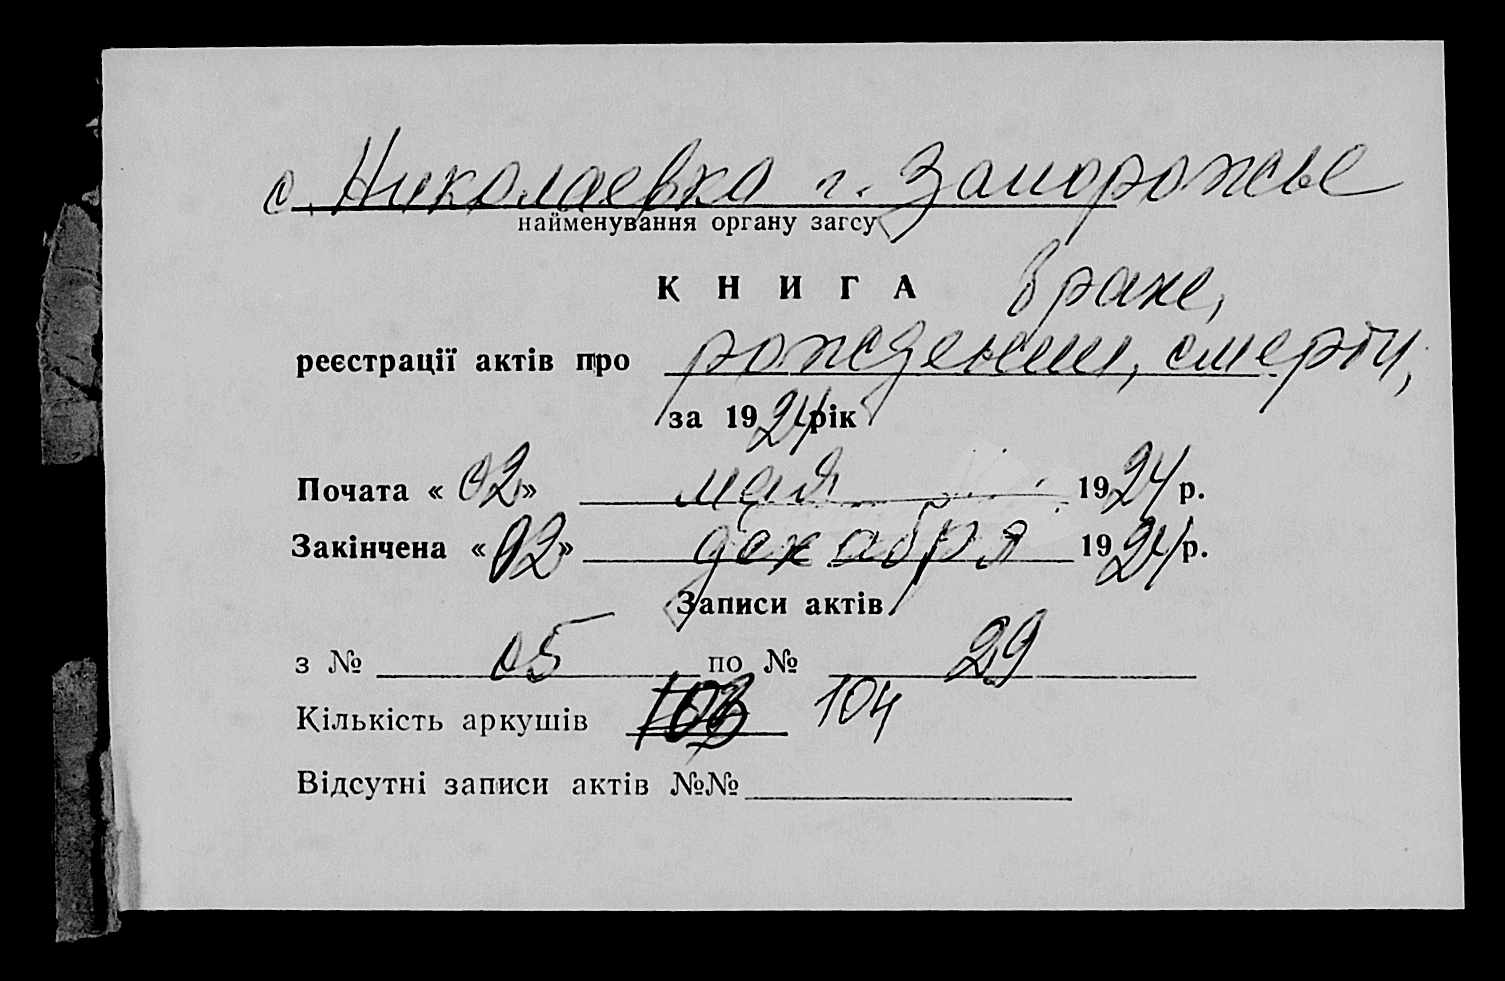 с. Николаевка г. Запорожье
найменування органу загсу
КНИГА браке,
реєстрації актів про рождении, смерти,
за 1924 рік
Почата «02» мая 1924 р.
Закінчена «02» декабря 1924 р.
Записи актів
з № 05 по № 29
Кількість аркушів 103 104
Відсутні записи актів №№